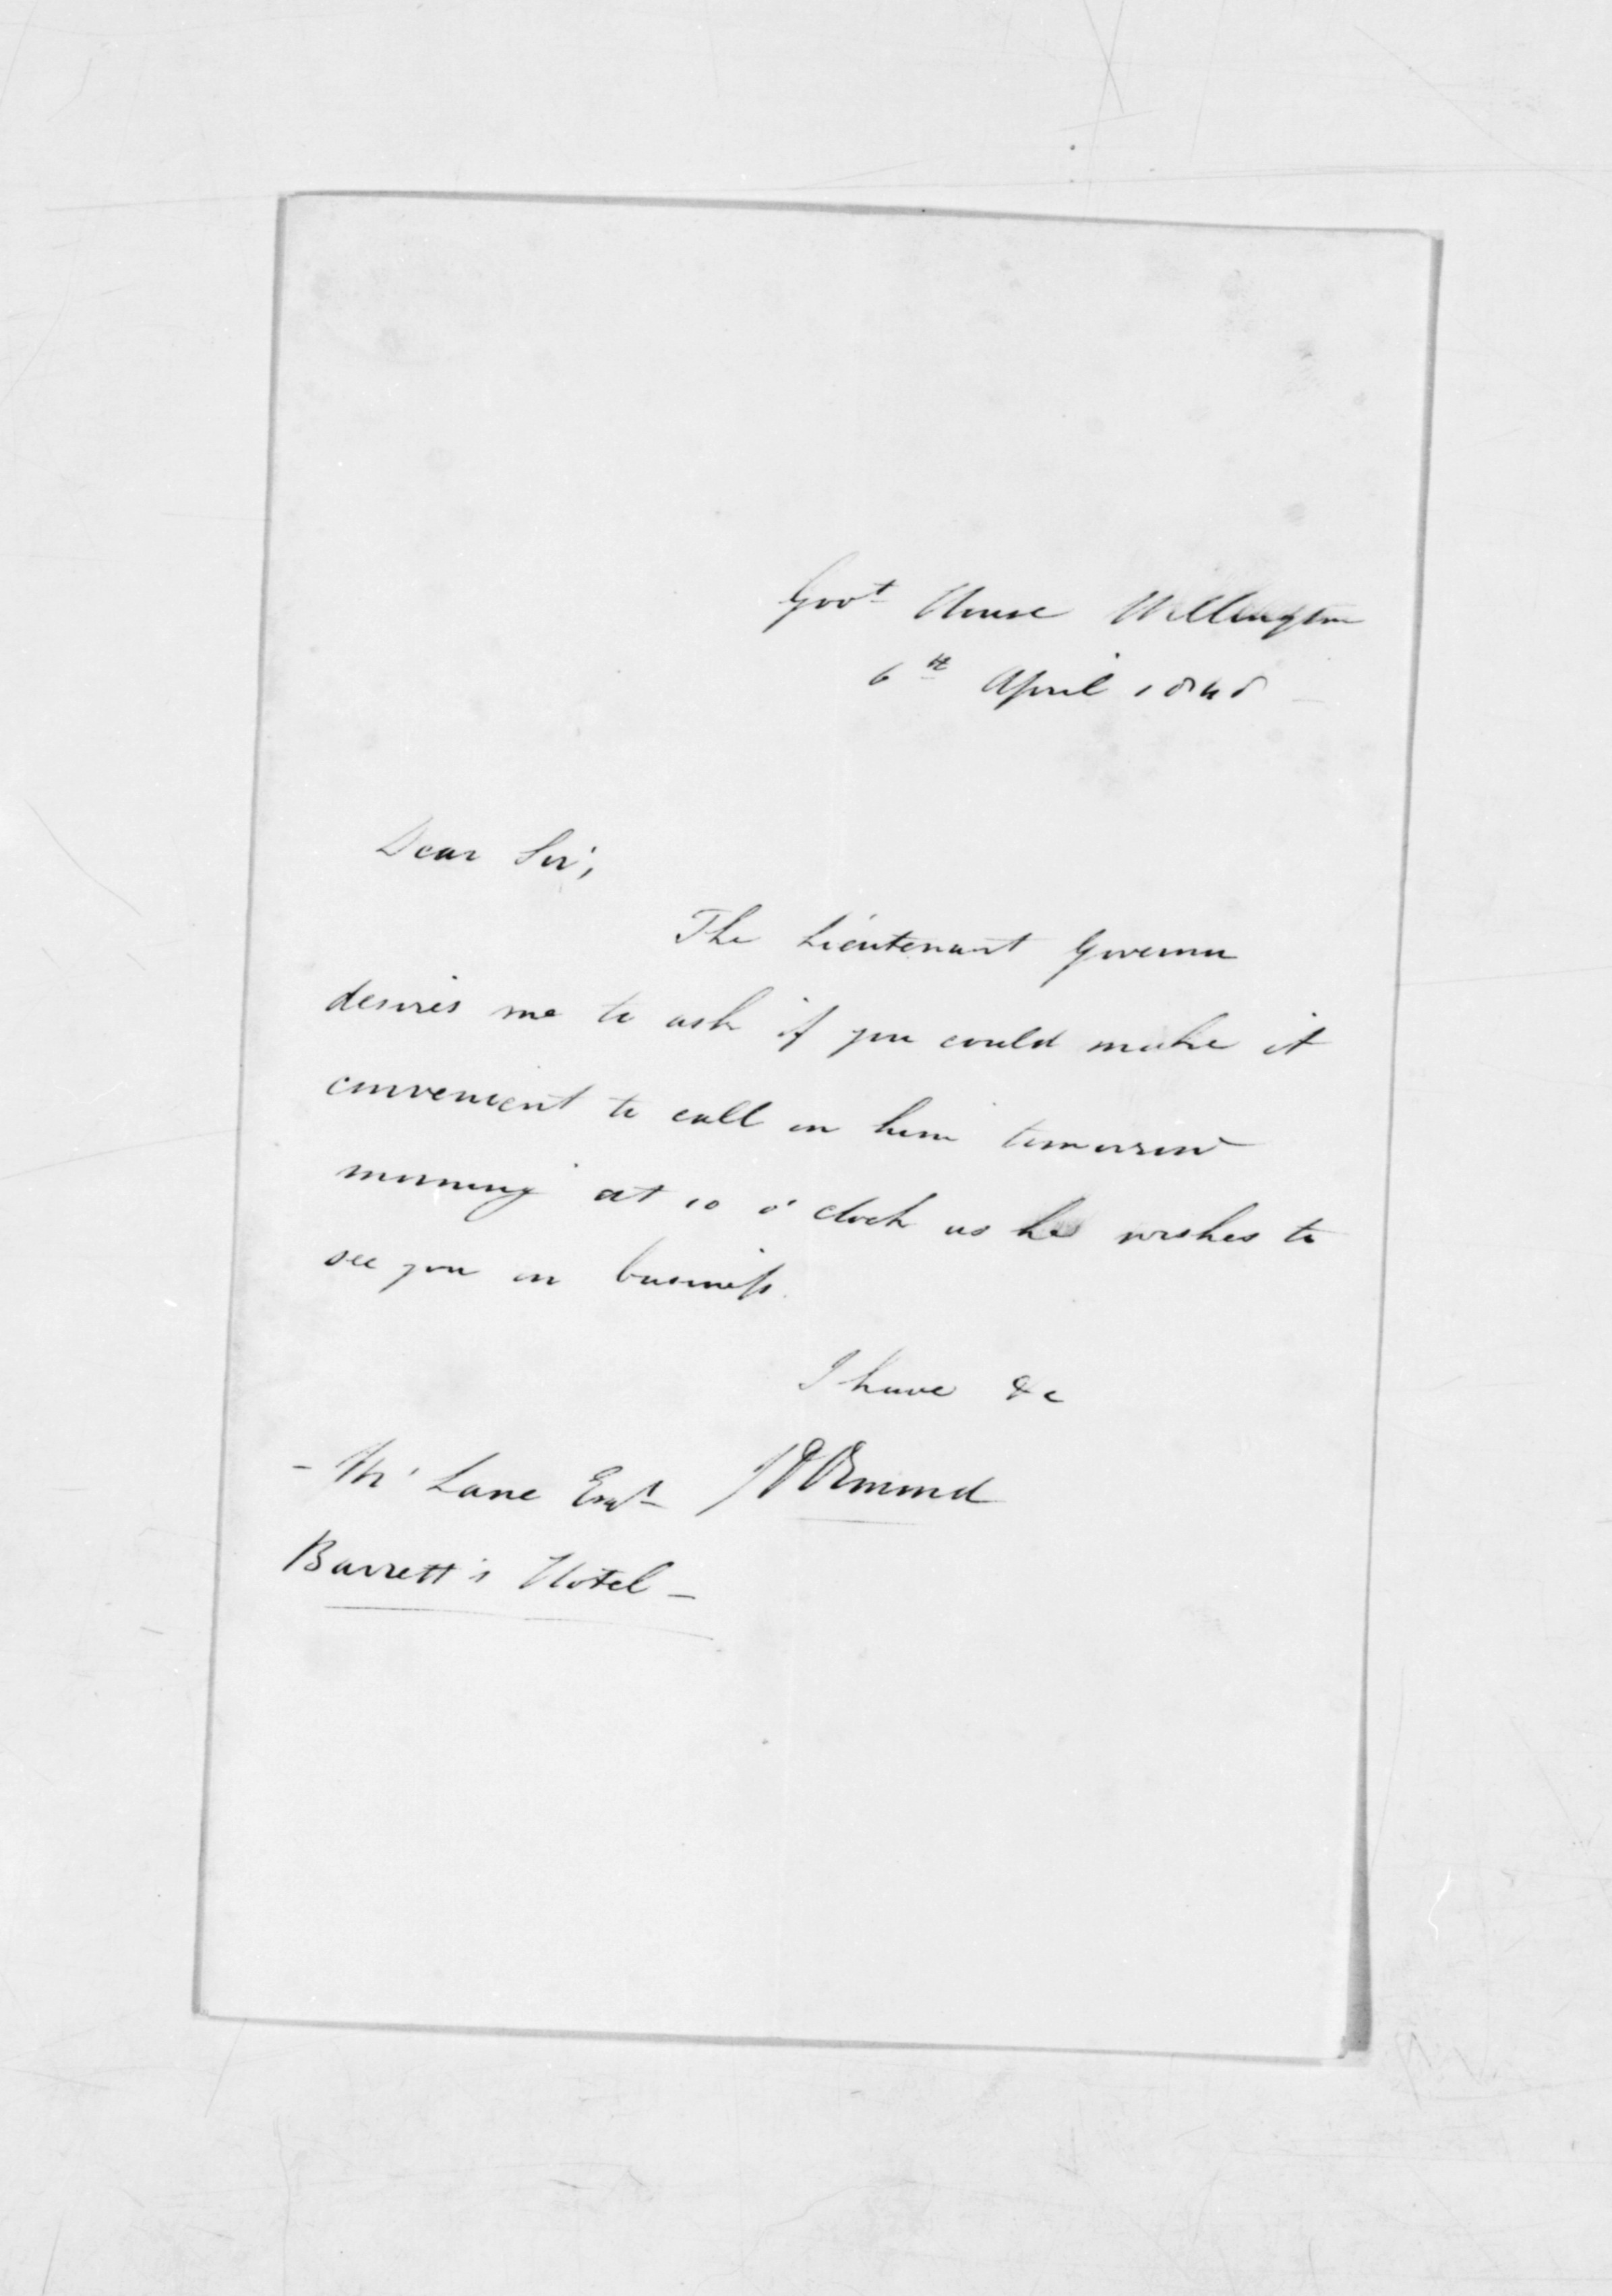 Govt House Wellington
6th April 1848
Dear Sir,
The Lieutenant Governor
desires me to ask if you could make it
convenient to call on him tomorrow
morning at 10 o'clock as he wishes to
see you on business.
I have &c
- Mc Lane Esqr JD Ormond
Barrett's Hotel -